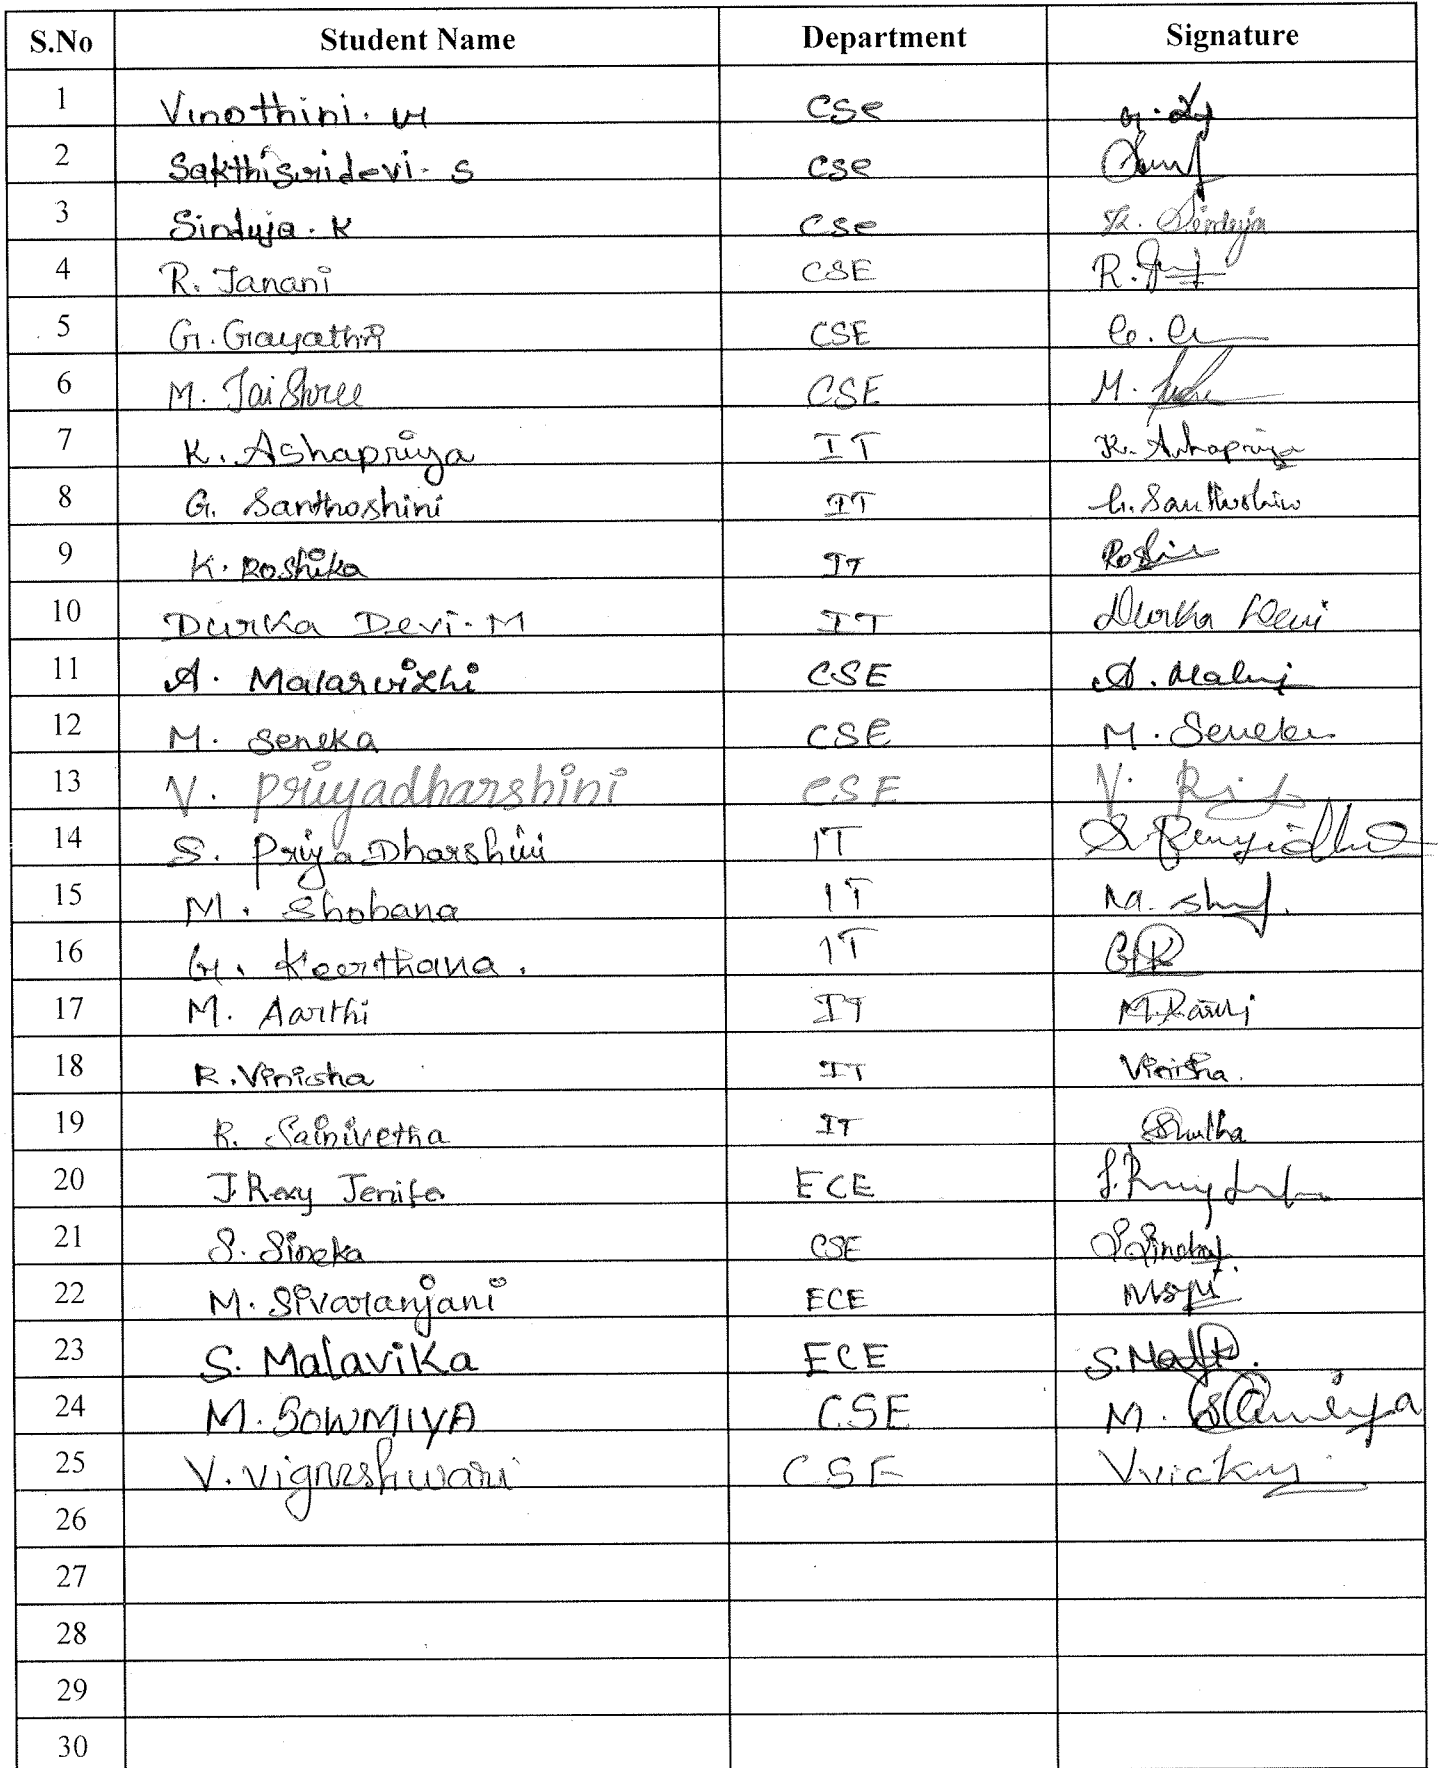 S.No Student Name Department Signature
1 Vinothini. G CSe
2 Sakthisridevi. S CSe
3 Sinduja. K CSe K. Sinduja
4 R. Janani CSE R.
5 G. Gayathri CSE
6 M. Jai Shree CSE M.
7 K. Ashapriya IT K. Ashapriya
8 G. Santhoshini IT G. Santhoshini
9 K. Roshika IT
10 Durka Devi. M IT Durka Devi
11 A. Malarvizhi CSE A.
12 M. Seneka CSE M. Seneka
13 V. Priyadharshini CSE V.
14 S. Priya Dharshini IT
15 M. Shobana IT M.
16 G. Keerthana. IT
17 M. Aarthi IT
18 R. Vinisha IT Vinisha.
19 R. Sainivetha IT
20 J. Rexy Jenifa ECE
21 S. Sineka CSE
22 M. Sivaranjani ECE
23 S. Malavika ECE S.
24 M. SOWMIYA CSE M. Sowmiya
25 V. Vigneshwari CSE
26
27
28
29
30